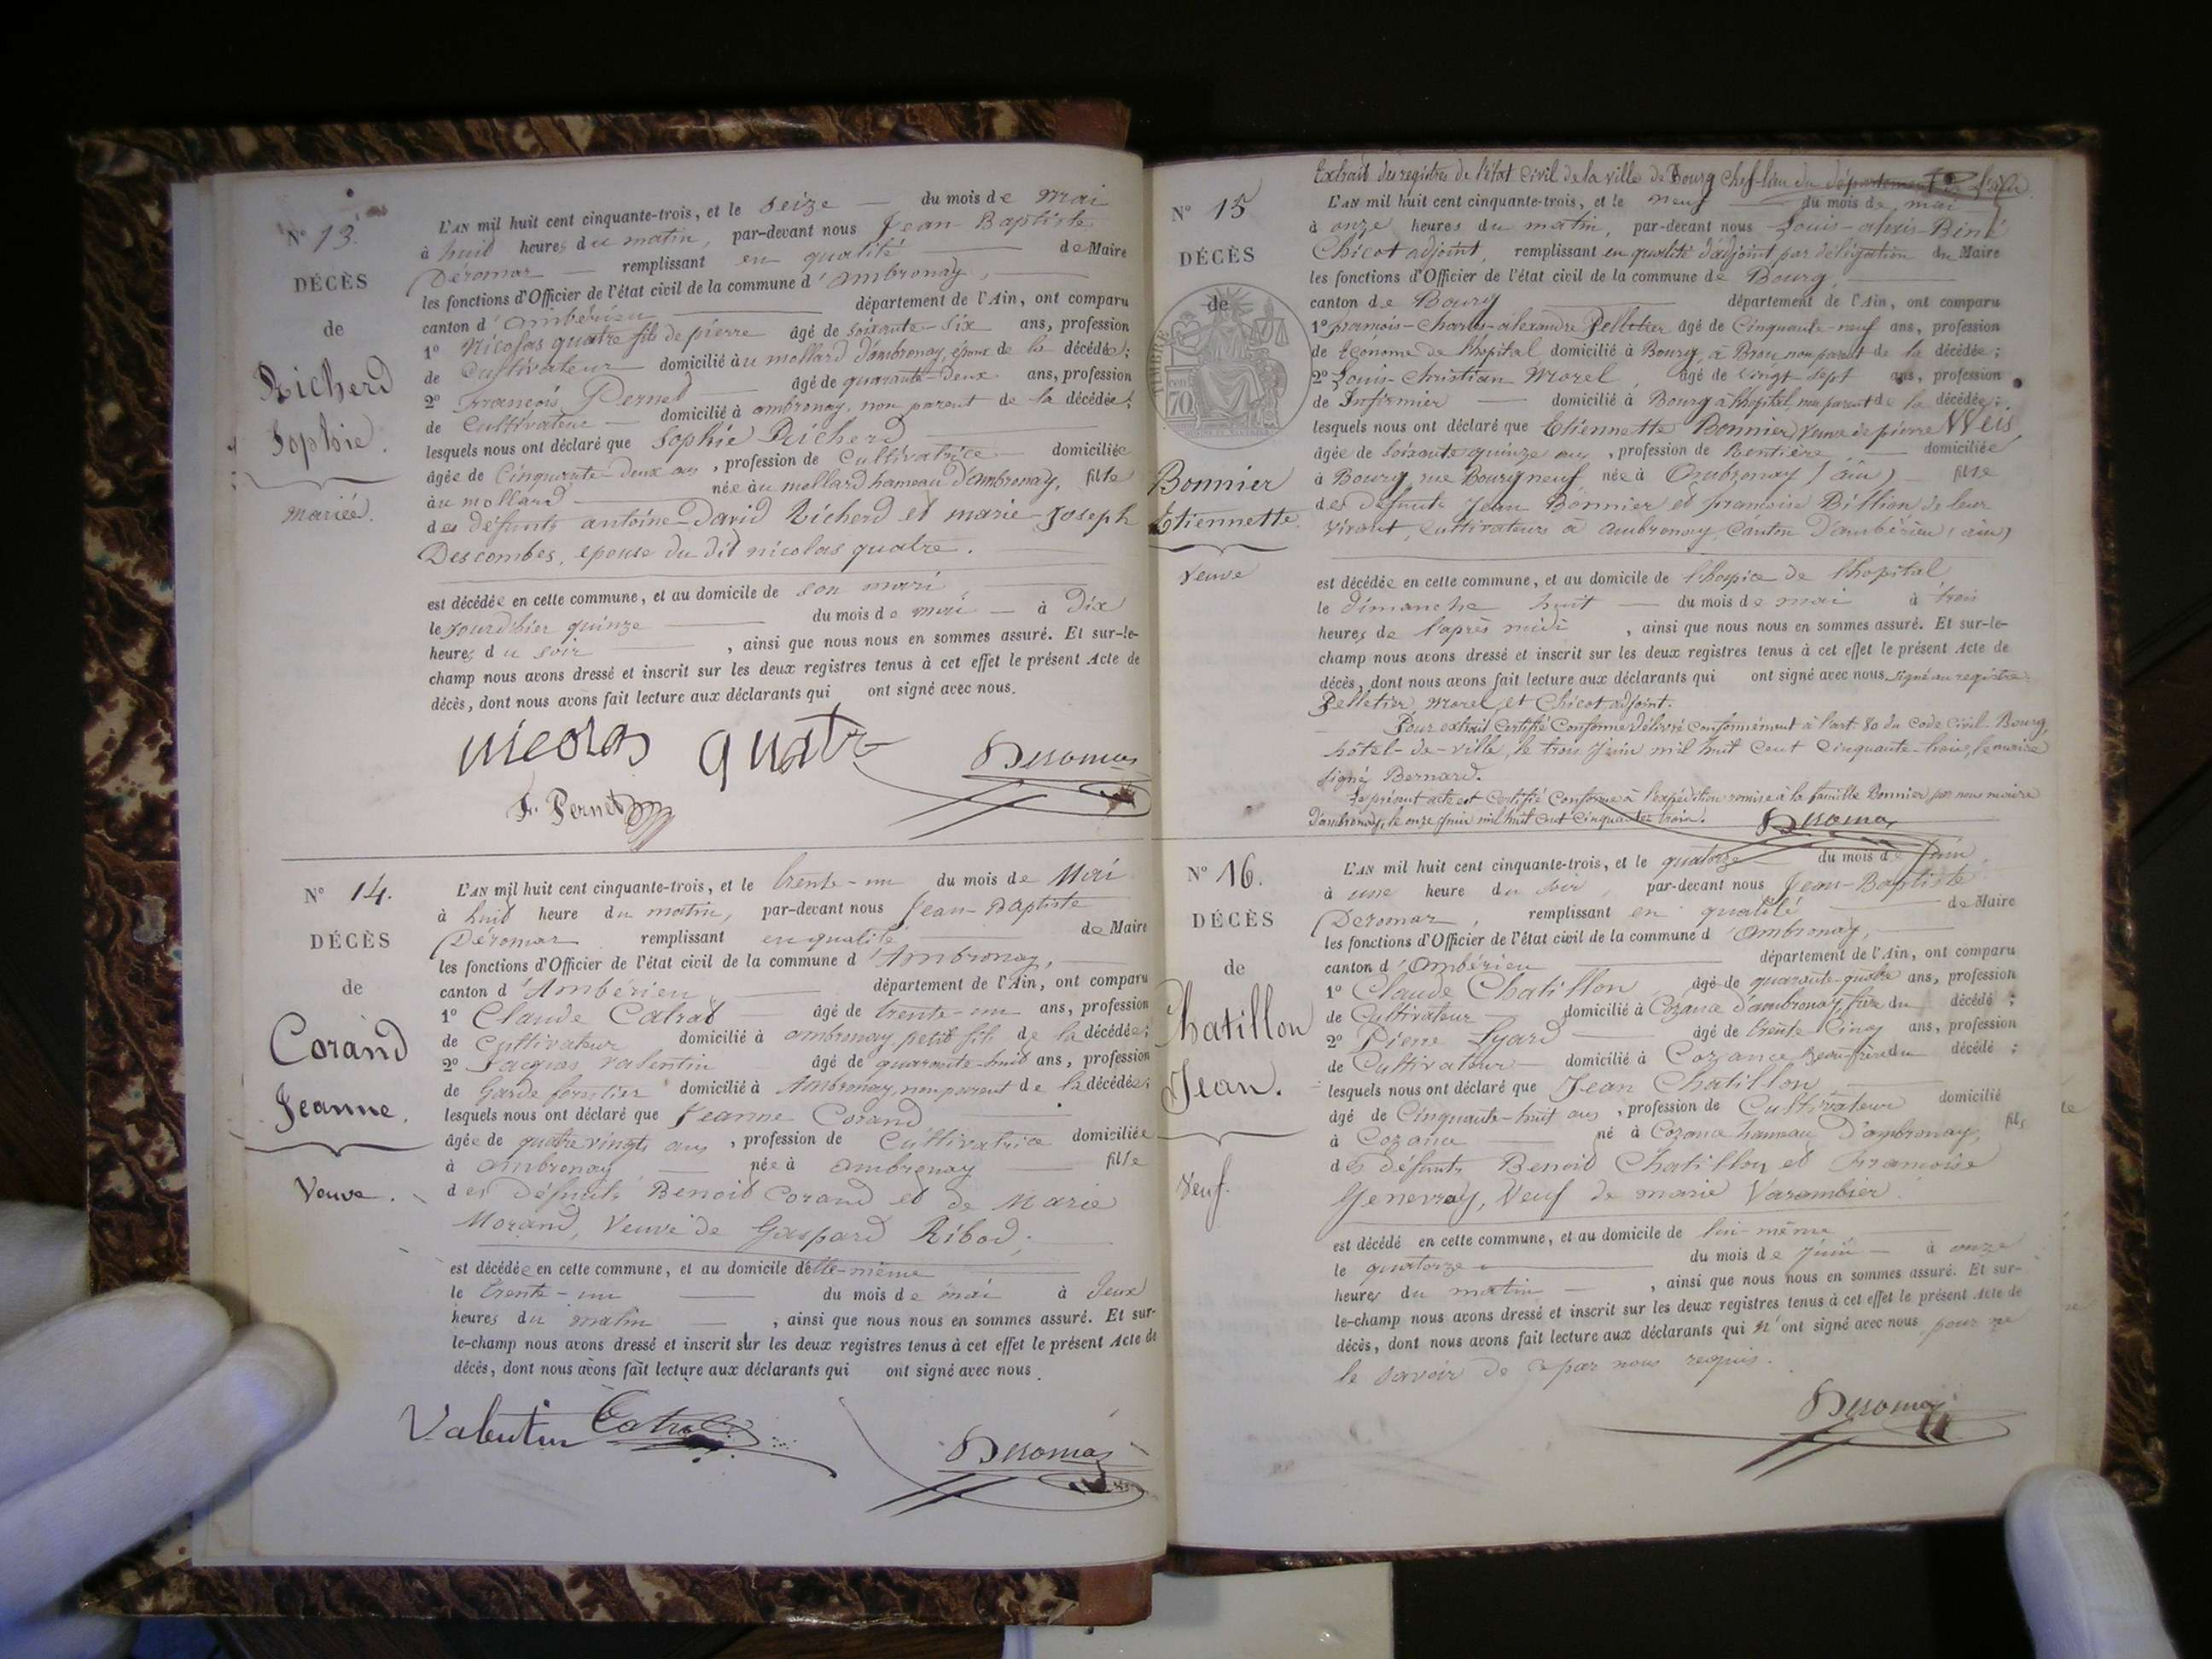 N° 13.
DÉCÈS
de
Richerd
Sophie.
mariée.
L'AN mil huit cent cinquante-trois, et le seize du mois de mai
à huit heures du matin, par-devant nous Jean-Baptiste
Déromas remplissant en qualité de Maire
les fonctions d'Officier de l'état civil de la commune d'ambronay,
canton d'ambérieu département de l'Ain, ont comparu
1° Nicolas quatre fils de pierre âgé de soixante-six ans, profession
de Cultivateur domicilié au mollard d'ambronay, époux de la décédée;
2° François Pernet âgé de quarante-deux ans, profession
de Cultivateur domicilié à ambronay, non parent de la décédée;
lesquels nous ont déclaré que Sophie Richerd
âgée de Cinquante-deux ans, profession de Cultivatrice domiciliée
au mollard née au mollard hameau d'ambronay, fille
des défunts antoine-David Richerd et marie-Joseph
Descombes, epouse du dit nicolas quatre.
est décédée en cette commune, et au domicile de son mari
le jourd'hier quinze du mois de mai à Dix
heures du soir, ainsi que nous nous en sommes assuré. Et sur-le-
champ nous avons dressé et inscrit sur les deux registres tenus à cet effet le présent Acte de
décès, dont nous avons fait lecture aux déclarants qui ont signé avec nous.
nicolas quatre Deromas
F. Pernet
N° 14.
DÉCÈS
de
Corand
Jeanne.
Veuve.
L'AN mil huit cent cinquante-trois, et le trente-un du mois de Mai
à huit heure du matin, par-devant nous Jean-Baptiste
Déromas remplissant en qualité de Maire
les fonctions d'Officier de l'état civil de la commune d'Ambronay,
canton d'Ambérieu département de l'Ain, ont comparu
1° Claude Catrat âgé de trente-un ans, profession
de Cultivateur domicilié à ambronay petit fils de la décédée;
2° Jacques Valentin âgé de quarante-huit ans, profession
de Garde forestier domicilié à Ambronay, non parent de la décédée;
lesquels nous ont déclaré que Jeanne Corand
âgée de quatre vingts ans, profession de Cultivatrice domiciliée
à ambronay née à ambronay fille
des défunts Benoit Corand et de Marie
Morand, Veuve de Gaspard Ribod;
est décédée en cette commune, et au domicile d'elle-même
le trente-un du mois de mai à deux
heures du matin, ainsi que nous nous en sommes assuré. Et sur-
le-champ nous avons dressé et inscrit sur les deux registres tenus à cet effet le présent Acte de
décès, dont nous avons fait lecture aux déclarants qui ont signé avec nous.
Valentin Catrat Deromas
Extrait des registres de l'état Civil de la ville de Bourg Chef-lieu du département de l'ain
N° 15
DÉCÈS
de
TIMBRE
70
Bonnier
Etiennette.
Veuve
L'AN mil huit cent cinquante-trois, et le neuf du mois de mai
à onze heures du matin, par-devant nous Louis-alexis-René
Chicot adjoint, remplissant en qualité d'adjoint par délégation du Maire
les fonctions d'Officier de l'état civil de la commune de Bourg,
canton de Bourg département de l'Ain, ont comparu
1° françois-Charles-alexandre Pelletier âgé de Cinquante-neuf ans, profession
de Econome de l'hopital domicilié à Bourg, à Brou non parent de la décédée;
2° Louis-Christian Morel, âgé de vingt sept ans, profession
de Infirmier domicilié à Bourg à l'hopital, non parent de la décédée;
lesquels nous ont déclaré que Etiennette Bonnier, Veuve de pierre Weis
âgée de soixante quinze ans, profession de Rentière domiciliée
à Bourg, rue Bourgneuf, née à Ambronay (ain) fille
des défunts Jean Bonnier et françoise Billion de leur
vivant, Cultivateurs à ambronay, Canton d'ambérieu (ain)
est décédée en cette commune, et au domicile de l'hospice de l'hopital
le dimanche huit du mois de mai à trois
heures de l'après midi, ainsi que nous nous en sommes assuré. Et sur-le-
champ nous avons dressé et inscrit sur les deux registres tenus à cet effet le présent Acte de
décès, dont nous avons fait lecture aux déclarants qui ont signé avec nous. signé au registre.
Pelletier, Morel, et Chicot adjoint.
Pour extrait Certifié Conforme délivré conformément à l'art. 80 du Code Civil. Bourg,
hôtel-de-ville, le trois Juin mil huit cent cinquante-trois, le maire
signé, Bernard.
Le présent acte est Certifié Conforme à l'expédition remise à la famille Bonnier par nous maire
d'ambronay, le onze Juin mil huit cent cinquante trois. Deromas
N° 16.
DÉCÈS
de
Chatillon
Jean.
Veuf.
L'AN mil huit cent cinquante-trois, et le quatorze du mois de Juin
à une heure du soir, par-devant nous Jean-Baptiste
Deromas, remplissant en qualité de Maire
les fonctions d'Officier de l'état civil de la commune d'ambronay,
canton d'ambérieu département de l'Ain, ont comparu
1° Claude Chatillon, âgé de quarante-quatre ans, profession
de Cultivateur domicilié à Cozance d'ambronay, frère du décédé;
2° Pierre Lyard âgé de trente Cinq ans, profession
de Cultivateur domicilié à Cozance Beau-frère du décédé;
lesquels nous ont déclaré que Jean Chatillon,
âgé de Cinquante-huit ans, profession de Cultivateur domicilié
à Cozance né à Cozance hameau d'ambronay, fils
des défunts Benoit Chatillon et Françoise
Genevray, Veuf de marie Varambier.
est décédé en cette commune, et au domicile de lui-même
le quatorze du mois de Juin à onze
heures du matin, ainsi que nous nous en sommes assuré. Et sur-
le-champ nous avons dressé et inscrit sur les deux registres tenus à cet effet le présent Acte de
décès, dont nous avons fait lecture aux déclarants qui n'ont signé avec nous pour ne
le savoir de ce par nous requis.
Deromas